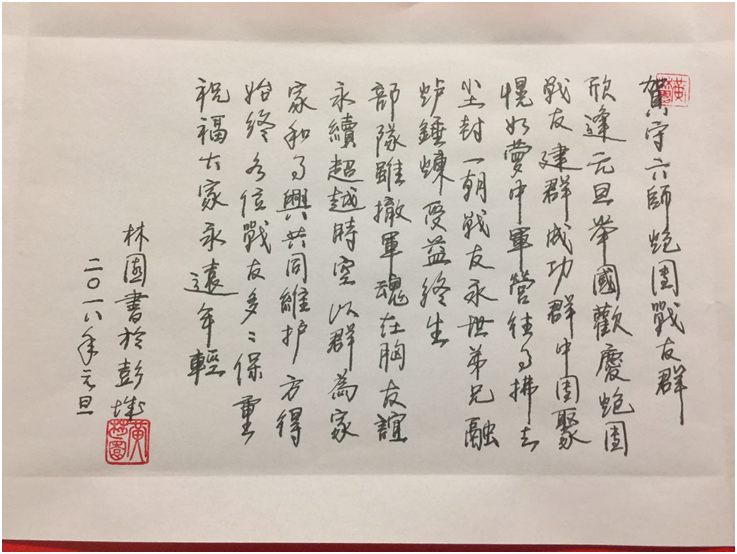 賀守六師炮团戰友群
欣逢元旦举國歡慶炮团
戰友建群成功群中团聚
幌如夢中軍營往事拂去
尘封一朝戰友永世弟兄融
炉錘煉受益終生
部隊雖撤軍魂在胸友誼
永續超越時空以群為家
家和事興共同維护方得
始終各位戰友多々保重
祝福大家永遠年輕
林園書於彭城
二〇一八年元旦